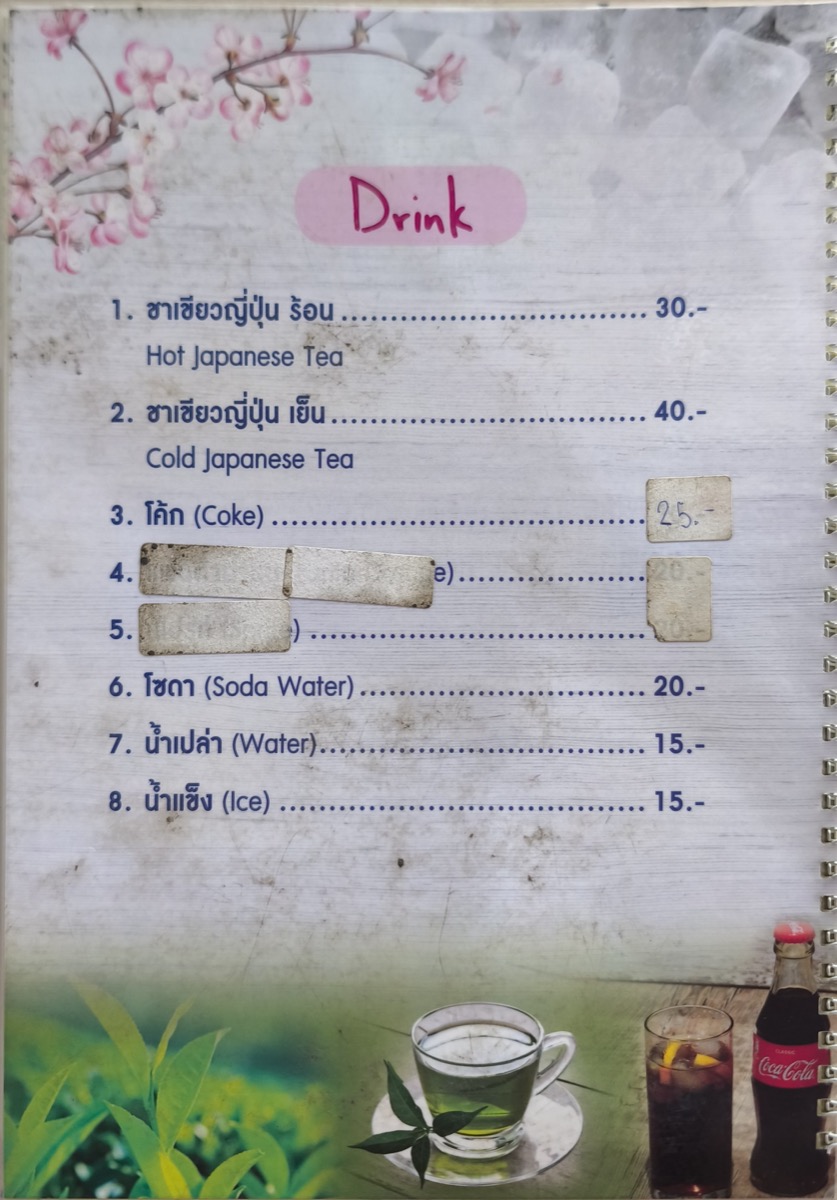 Drink
1. ชาเขียวญี่ปุ่น ร้อน ................................ 30.-
Hot Japanese Tea
2. ชาเขียวญี่ปุ่น เย็น ................................. 40.-
Cold Japanese Tea
3. โค้ก (Coke) ....................................... 25.-
4. e) .................... 20.-
5. ) ................................... 20.-
6. โซดา (Soda Water) .............................. 20.-
7. น้ำเปล่า (Water) .................................. 15.-
8. น้ำแข็ง (Ice) ...................................... 15.-
CLASSIC
Coca-Cola